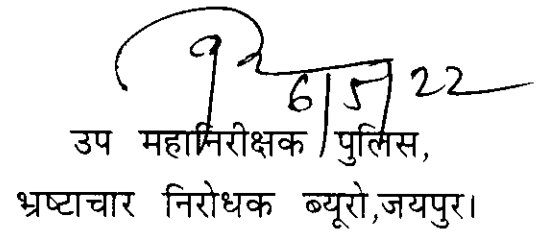 6/5/22
उप महानिरीक्षक पुलिस,
भ्रष्टाचार निरोधक ब्यूरो,जयपुर।